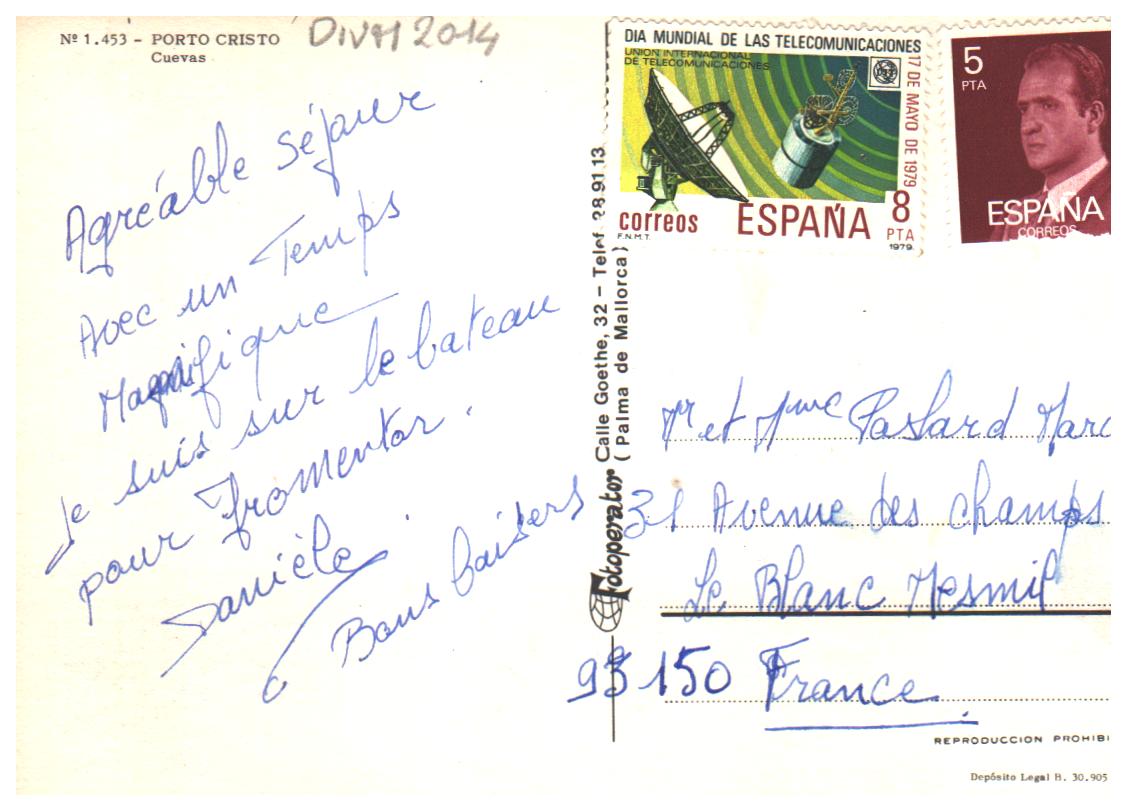 Nº 1.453 - PORTO CRISTO
Cuevas
DIVM 2014
Agréable séjour
Avec un Temps
Magnifique
Je suis sur le bateau
pour fromentor.
Danièle
Bons baisers
Fotoperator Calle Goethe, 32 - Telef. 28 91 13
( Palma de Mallorca )
DIA MUNDIAL DE LAS TELECOMUNICACIONES
UNION INTERNACIONAL
DE TELECOMUNICACIONES
17 DE MAYO DE 1979
correos ESPAÑA 8
PTA
F.N.M.T.
1979
5
PTA
ESPAÑA
CORREOS
Mr et Mme Pastard Marc
31 Avenue des champs
Le Blanc Mesnil
93150 France
REPRODUCCION PROHIBI
Depósito Legal B. 30.905